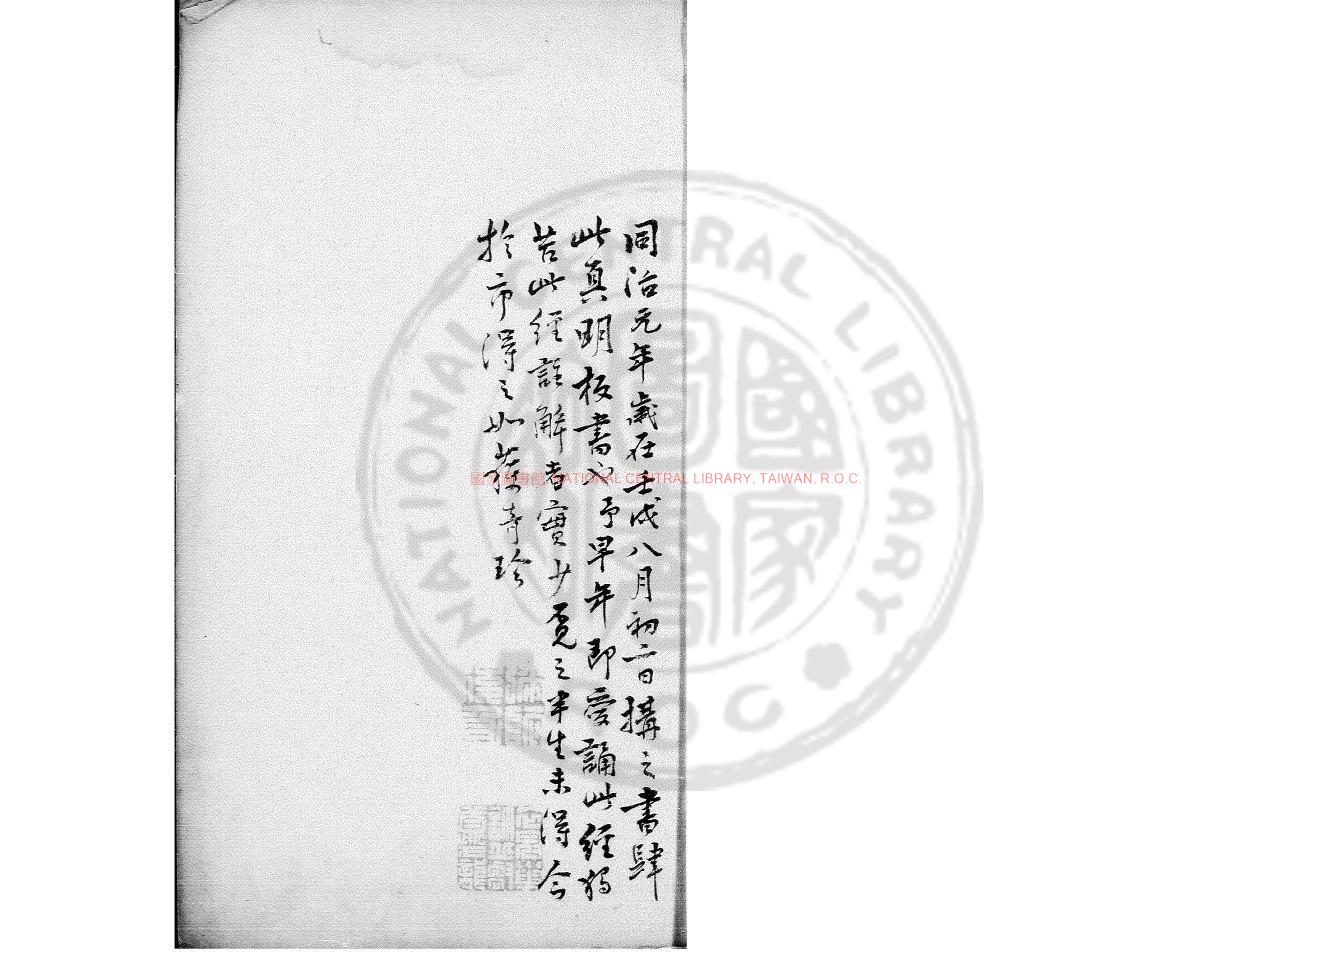 同治元年歲在壬戌八月初二日搆之書肆
此真明板書也予早年即愛誦此經獨
苦此經註解者實少覓之半生未得今
於市得之如獲奇珍
國家圖書館 NATIONAL CENTRAL LIBRARY, TAIWAN, R.O.C.
NATIONAL CENTRAL LIBRARY
ROC
國家圖書